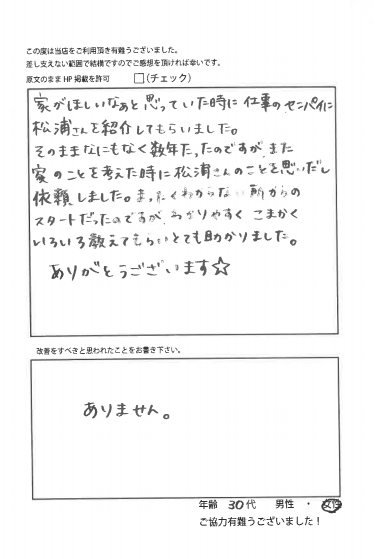 この度は当店をご利用頂き有難うございました。
差し支えない範囲で結構ですのでご感想を頂ければ幸いです。
原文のまま HP 掲載を許可　□(チェック)
家がほしいなぁと思っていた時に 仕事の センパイに
松浦さんを紹介してもらいました。
そのままなにもなく数年たったのですが、また
家のことを考えた時に松浦さんのことを思いだし
依頼しました。まったくわからない所からの
スタートだったのですが、わかりやすく こまかく
いろいろ教えてもらいとても助かりました。
ありがとうございます☆
改善をすべきと思われたことをお書き下さい。
ありません。
年齢 30代 男性 ・ 女性
ご協力有難うございました！